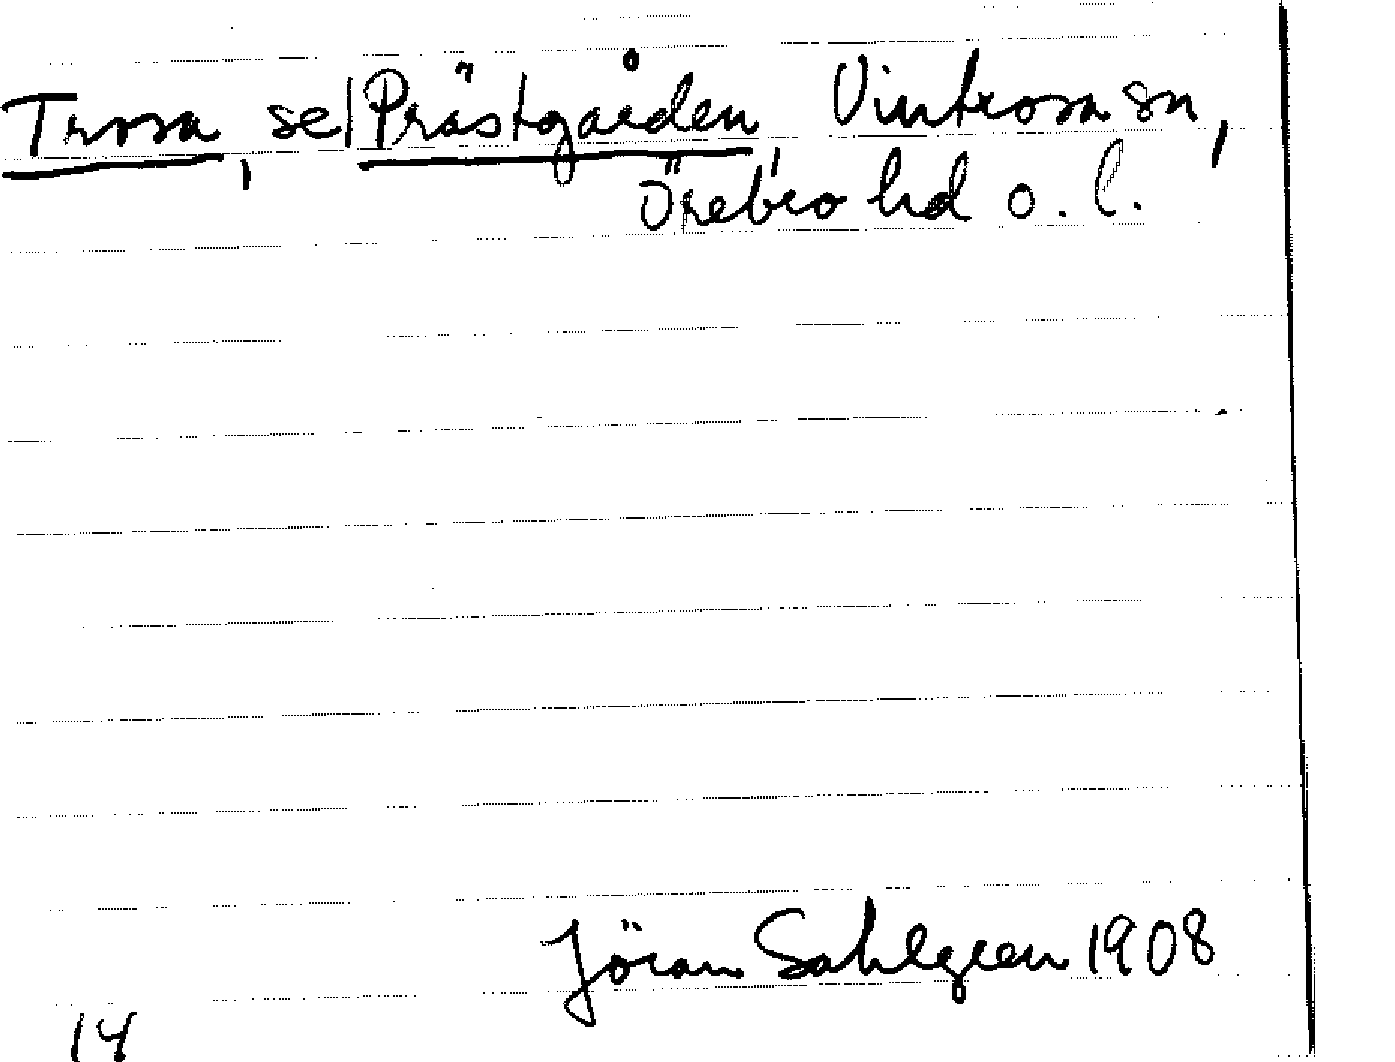 Trosa, se Prästgården, Vintrosa sn,
Örebro hd o. l.
Jöran Sahlgren 1908
14